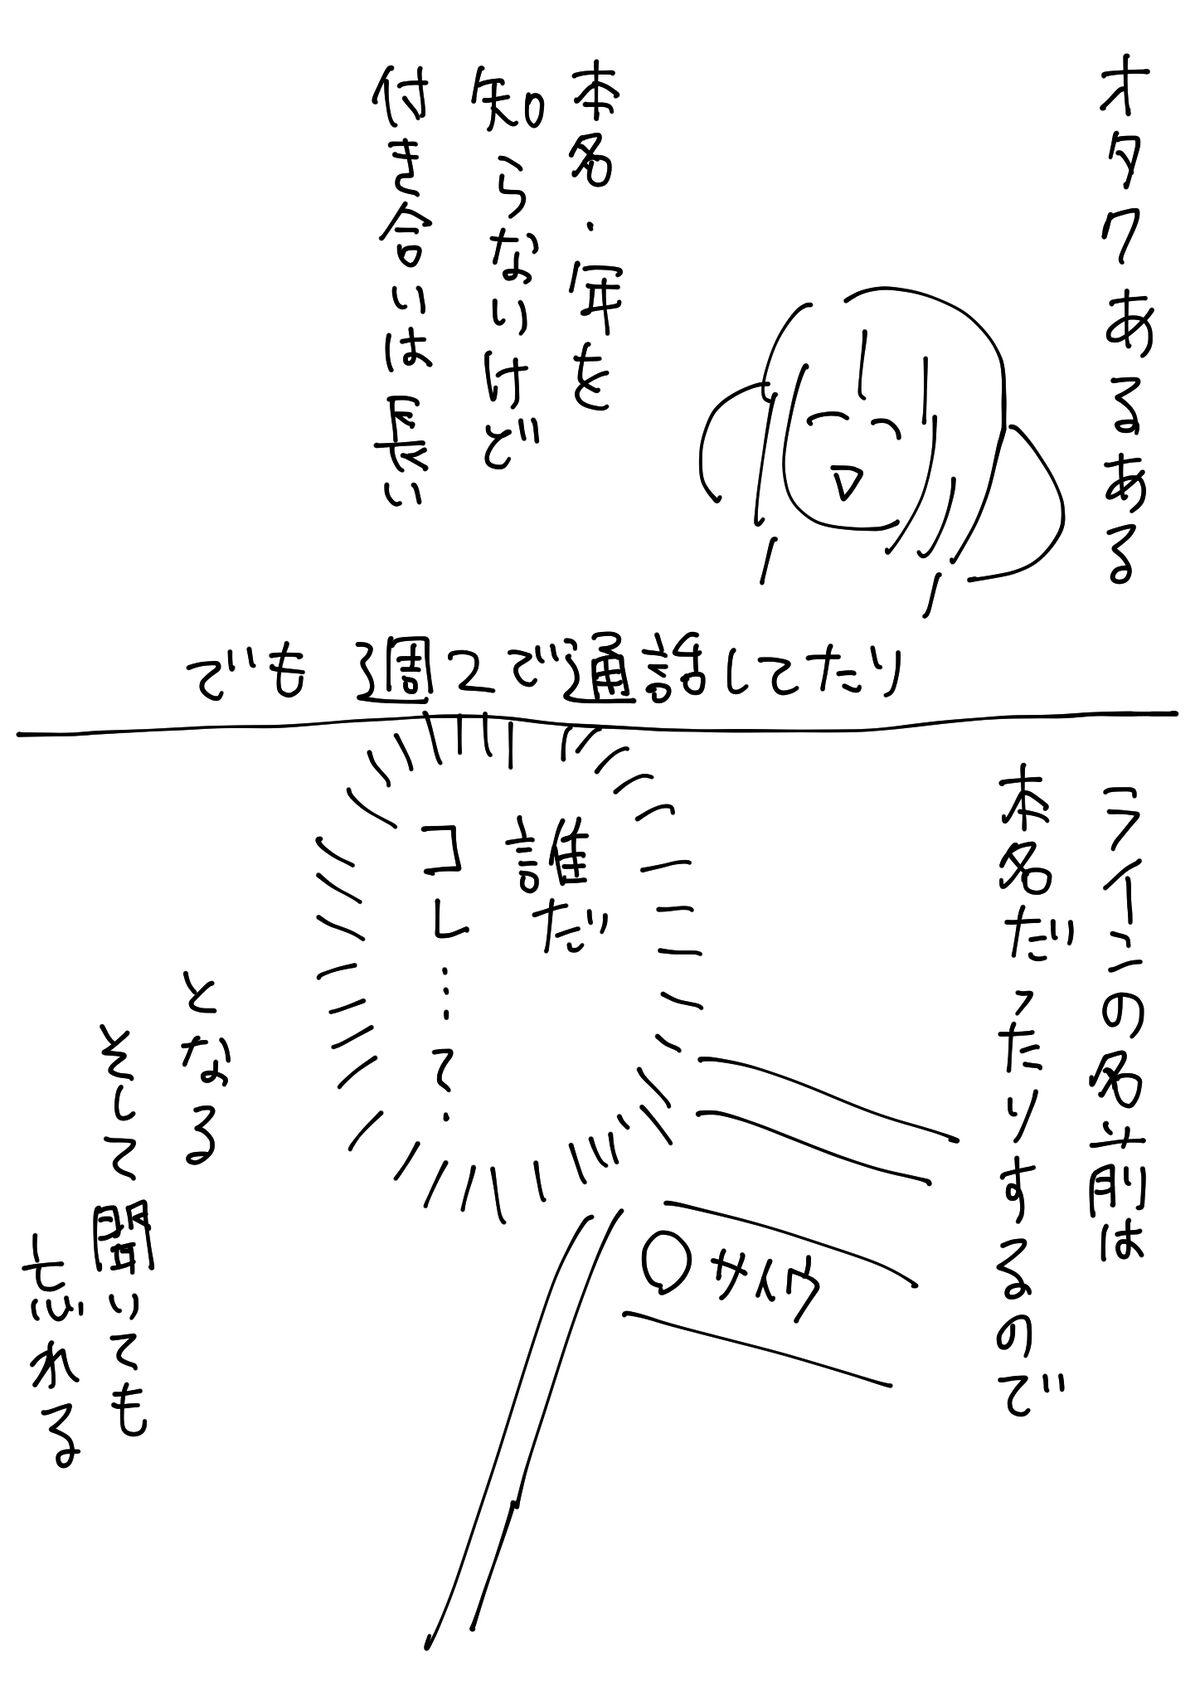 オタクあるある
本名・年を
知らないけど
付き合いは長い
でも週2で通話してたり
ラインの名前は
本名だったりするので
誰だ
コレ…?
〇サイウ
となる
そして聞いても
忘れる